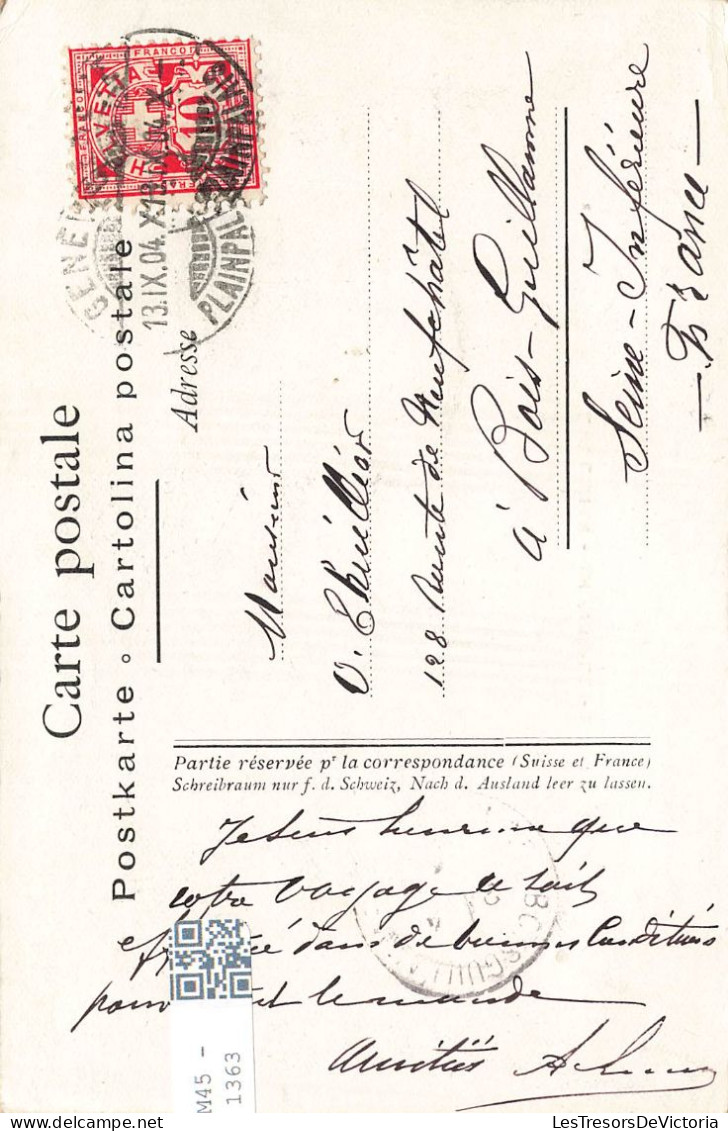 Carte postale
Postkarte ◦ Cartolina postale
Adresse
FRANCO
HELVETIA
10
13.IX.04.X
PLAINPAL
Monsieur
V. Thuillier
128 Route de Neufchâtel
à Bois-Guillaume
Seine-Inférieure
— France —
Partie réservée pr la correspondance (Suisse et France)
Schreibraum nur f. d. Schweiz, Nach d. Ausland leer zu lassen.
Je suis heureux que
votre voyage se soit
dans de bonnes conditions
pour le monde
Amitiés
M45 -
1363
LesTresorsDeVictoria.com